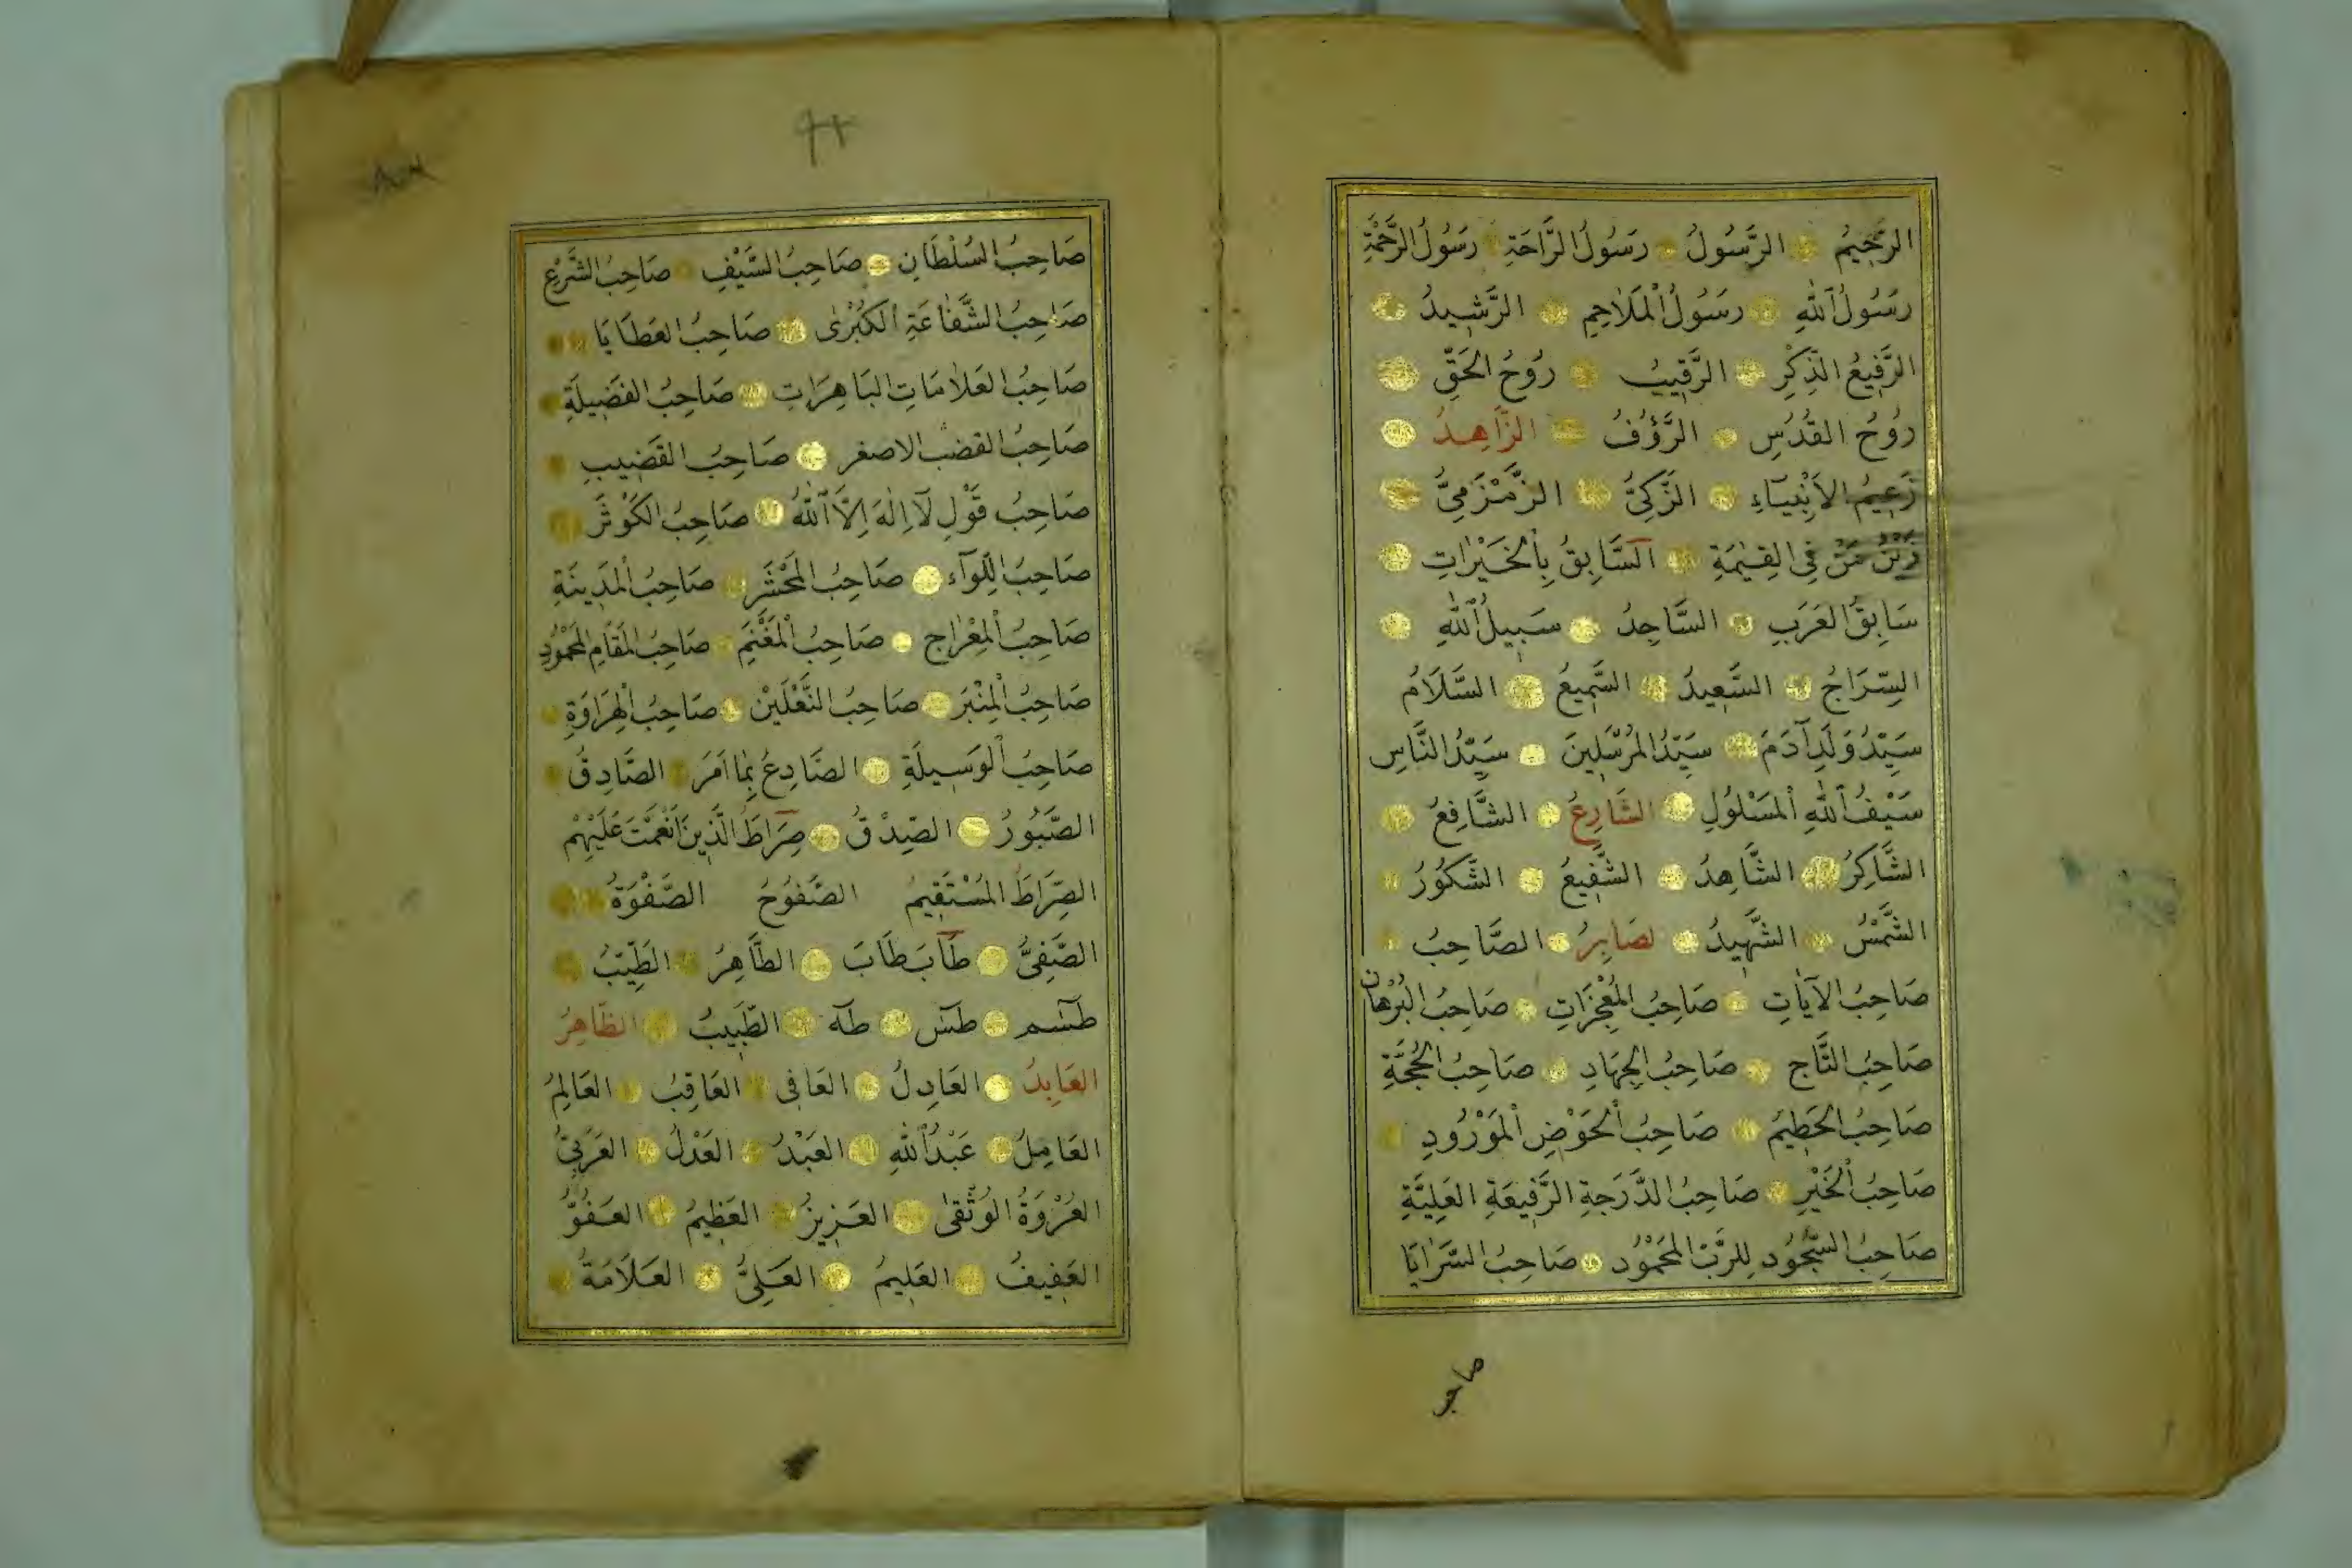 الرَّحِيمُ الرَّسُولُ رَسُولُ الرَّاحَةِ رَسُولُ الرَّحْمَةِ
رَسُولُ اللّٰهِ رَسُولُ الْمَلَاحِمِ الرَّشِيدُ
الرَّفِيعُ الذِّكْرِ الرَّقِيبُ رُوحُ الحَقِّ
رُوحُ القُدُسِ الرَّؤُفُ الزَّاهِدُ
زَعِيمُ الاَنْبِيَآءِ الزَّكِيُّ الزَّمْزَمِيُّ
زَيْنُ مَنْ فِي القِيٰمَةِ السَّابِقُ بِالْخَيْرَاتِ
سَابِقُ العَرَبِ السَّاجِدُ سَبِيلُ اللّٰهِ
السِّرَاجُ السَّعِيدُ السَّمِيعُ السَّلَامُ
سَيِّدُ وَلَدِ آدَمَ سَيِّدُ المُرْسَلِينَ سَيِّدُ النَّاسِ
سَيْفُ اللّٰهِ الْمَسْلُولِ الشَّارِعُ الشَّافِعُ
الشَّاكِرُ الشَّاهِدُ الشَّفِيعُ الشَّكُورُ
الشَّمْسُ الشَّهِيدُ لصَابِرُ الصَّاحِبُ
صَاحِبُ الآيَاتِ صَاحِبُ المُعْجِزَاتِ صَاحِبُ البُرْهَان
صَاحِبُ التَّاجِ صَاحِبُ الجِهَادِ صَاحِبُ الحُجَّةِ
صَاحِبُ الحَطِيمِ صَاحِبُ الْحَوْضِ الْمَوْرُودِ
صَاحِبُ الْخَيْرِ صَاحِبُ الدَّرَجَةِ الرَّفِيعَةِ العَلِيَّةِ
صَاحِبُ السُّجُودِ لِلرَّبِّ المَحْمُودِ صَاحِبُ السَّرَايَا
صاحب
صَاحِبُ السُلْطَانِ صَاحِبُ السَّيْفِ صَاحِبُ الشَّرْعِ
صَاحِبُ الشَّفَاعَةِ الْكُبْرٰى صَاحِبُ العَطَايَا
صَاحِبُ العَلَامَاتِ البَاهِرَاتِ صَاحِبُ الفَضِيلَةِ
صَاحِبُ القضب الاصغر صَاحِبُ القَضِيبِ
صَاحِبُ قَوْلِ لَآ اِلٰهَ اِلَّا اللّٰهُ صَاحِبُ الكَوْثَرِ
صَاحِبُ اللِّوَآءِ صَاحِبُ المَحْشَرِ صَاحِبُ الْمَدِينَةِ
صَاحِبُ الْمِعْرَاجِ صَاحِبُ الْمَغْنَمِ صَاحِبُ المَقَامِ المَحْمُودِ
صَاحِبُ الْمِنْبَرِ صَاحِبُ النَّعْلَيْنِ صَاحِبُ الْهِرَاوَةِ
صَاحِبُ الْوَسِيلَةِ الصَّادِعُ بِمَا اَمَرَ الصَّادِقُ
الصَّبُورُ الصِّدْقُ صِرَاطَ الَّذِينَ اَنْعَمْتَ عَلَيْهِمْ
الصِّرَاطُ المُسْتَقِيمُ الصَّفُوحُ الصَّفْوَةُ
الصَّفِيُّ طَابَ طَابَ الطَّاهِرُ الطَيِّبُ
طٓسٓم طٓسٓ طٰهٓ الطَّبِيبُ الظَّاهِرُ
العَابِدُ العَادِلُ العَافِى العَاقِبُ العَالِمُ
العَامِلُ عَبْدُ اللّٰهِ العَبْدُ العَدْلُ العَرَبِيُّ
العُرْوَةُ الوُثْقٰى العَزِيزُ العَظِيمُ العَفُوُّ
العَفِيفُ العَلِيمُ العَلِىُّ العَلَامَةُ